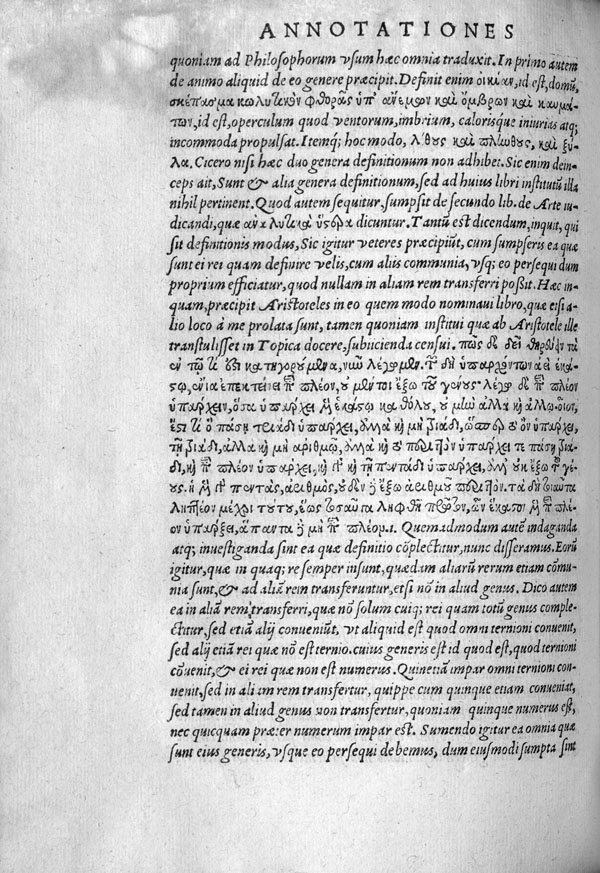 ANNOTATIONES
quoniam ad Philosophorum vsum hæc omnia traduxit. In primo autem
de animo aliquid de eo genere præcipit. Definit enim οἰκίαν, id est, domũ,
σκέπασμα κωλυτικὸν φθορᾶς ὑπ' ἀνέμων καὶ ὄμβρων καὶ καυμά-
των, id est, operculum quod ventorum, imbrium, calorisque iniurias atq;
incommoda propulsat. Itemq; hoc modo, λίθους καὶ πλίνθους, καὶ ξύ-
λα. Cicero nisi hæc duo genera definitionum non adhibet. Sic enim dein-
ceps ait, Sunt & alia genera definitionum, sed ad huius libri institutũ illa
nihil pertinent. Quod autem sequitur, sumpsit de secundo lib. de Arte iu-
dicandi, quæ ἀναλυτικὰ ὕστερα dicuntur. Tantũ est dicendum, inquit, qui
sit definitionis modus, Sic igitur veteres præcipiũt, cum sumpseris ea quæ
sunt ei rei quam definire velis, cum aliis communia, vsq; eo persequi dum
proprium efficiatur, quod nullam in aliam rem transferri poßit. Hæc in-
quam, præcipit Aristoteles in eo quem modo nominaui libro, quæ etsi a-
lio loco à me prolata sunt, tamen quoniam institui quæ ab Aristotele ille
transtulisset in Topica docere, subiicienda censui. πῶς δὲ δεῖ θηρεύειν τὰ
ἐν τῷ τί ἐστι κατηγορούμενα, νῦν λέγωμεν. τῶν δὴ ὑπαρχόντων ἀεὶ ἑκά-
στῳ, ἔνια ἐπεκτείνει ἐπὶ πλέον, οὐ μέντοι ἔξω τοῦ γένους. λέγω δὲ ἐπὶ πλέον
ὑπάρχειν, ὅσα ὑπάρχει μὲν ἑκάστῳ καθόλου, οὐ μὴν ἀλλὰ καὶ ἄλλῳ. οἷον,
ἔστι τι ὃ πάσῃ τριάδι ὑπάρχει, ἀλλὰ καὶ μὴ τριάδι, ὥσπερ τὸ ὂν ὑπάρχει,
τῇ τριάδι, ἀλλὰ καὶ μὴ ἀριθμῷ, ἀλλὰ καὶ τὸ περιττὸν ὑπάρχει τε πάσῃ τριά-
δι, καὶ ἐπὶ πλέον ὑπάρχει, καὶ γὰρ καὶ τῇ πεντάδι ὑπάρχει, ἀλλ' οὐκ ἔξω τοῦ γέ-
νους. ἡ μὲν γὰρ πεντὰς, ἀριθμὸς, οὐδὲν δὲ ἔξω ἀριθμοῦ περιττόν. τὰ δὴ τοιαῦτα
ληπτέον μέχρι τούτου, ἕως τοσαῦτα ληφθῇ πρῶτον, ὧν ἕκαστον μὲν ἐπὶ πλέ-
ον ὑπάρξει, ἅπαντα δὲ μὴ ἐπὶ πλέον. i. Quemadmodum autẽ indaganda
atq; inuestiganda sint ea quæ definitio cõplectitur, nunc disseramus. Eorũ
igitur, quæ in quaq; re semper insunt, quædam aliarũ rerum etiam cõmu-
nia sunt, & ad aliã rem transferuntur, etsi nõ in aliud genus. Dico autem
ea in aliã rem transferri, quæ nõ solum cuiq; rei quam totũ genus comple-
ctitur, sed etiã alij conveniũt, vt aliquid est quod omni ternioni conuenit,
sed alij etiã rei quæ nõ est ternio. cuius generis est id quod est, quod ternioni
cõuenit, & ei rei quæ non est numerus. Quinetiã impar omni ternioni con-
uenit, sed in aliam rem transfertur, quippe cum quinque etiam conueniat,
sed tamen in aliud genus non transfertur, quoniam quinque numerus est,
nec quicquam præter numerum impar est. Sumendo igitur ea omnia quæ
sunt eius generis, vsque eo persequi debemus, dum eiusmodi sumpta sint